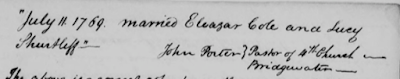 "July 11. 1769. married Eleazar Cole and Lucy
Shurtleff"
John Porter } Pastor of 4th Church
Bridgewater
The above is a correct